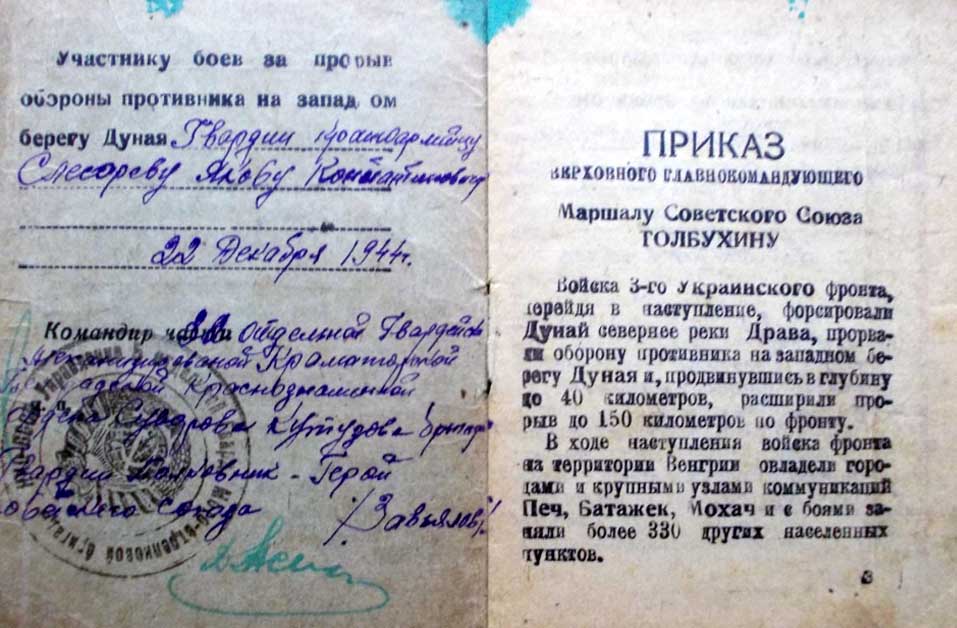 Участнику боев за прорыв
обороны противника на запад ом
берегу Дуная Гвардии красноармейцу
Слесареву Якову Константиновичу
22 Декабря 1944г.
Командир части Отдельной Гвардейск
Механизированой Краматорской
Краснознаменной
ордена Суворова Кутузова бригады
Гвардии Полковник - Герой
Советского Союза /Завьялов/
ПРИКАЗ
ВЕРХОВНОГО ГЛАВНОКОМАНДУЮЩЕГО
Маршалу Советского Союза
ТОЛБУХИНУ
Войска 3-го Украинского фронта,
перейдя в наступление, форсировали
Дунай севернее реки Драва, прорва-
ли оборону противника на западном бе-
регу Дуная и, продвинувшись в глубину
до 40 километров, расширили про-
рыв до 150 километров по фронту.
В ходе наступления войска фронта
на территории Венгрии овладели горо-
дами и крупными узлами коммуникаций
Печ, Батажек, Мохач и с боями за-
няли более 330 других населенных
пунктов.
3